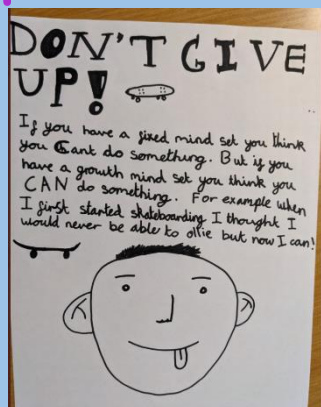 DON'T GIVE
UP!
If you have a fixed mind set you think
you Cant do something. But if you
have a growth mind set you think you
CAN do something. For example when
I first started skateboarding I thought I
would never be able to ollie but now I can!